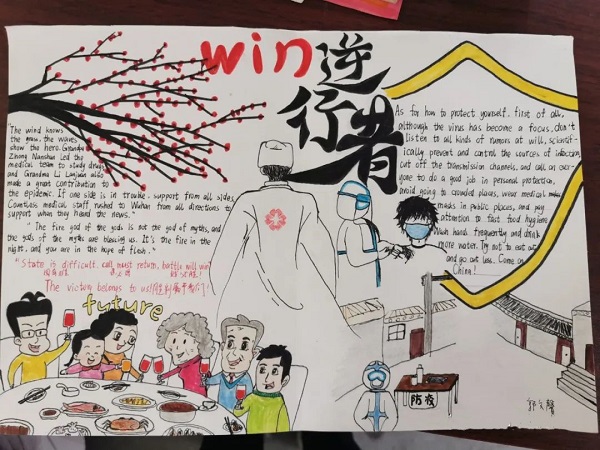 win
逆行者
"The wind knows
the grass, the waves
show the hero. Grandpa
Zhong Nanshan led the
medical team to study drugs,
and Grandma Li Lanjuan also
made a great contribution to
the epidemic. If one side is in trouble, support from all sides,
Countless medical staff rushed to Wuhan from all directions to
support when they heard the news."
"The fire god of the gods is not the god of myths, and
the gods of the myths are blessing us. It's the fire in the
night, and you are in the hope of flesh."
"State is difficult, call must return, battle will win
国有难 召必回 战必胜!
The victory belongs to us!胜利属于我们!
future
As for how to protect yourself. First of all,
although the virus has become a focus, don't
listen to all kinds of rumors at will, scientif-
ically prevent and control the sources of infection,
cut off the transmission channels, and call on ever-
yone to do a good job in personal protection,
avoid going to crowded places, wear medical
masks in public places, and pay
attention to fast food hygiene
Wash hands frequently and drink
more water. Try not to eat out
and go out less. Come on
China!
防疫